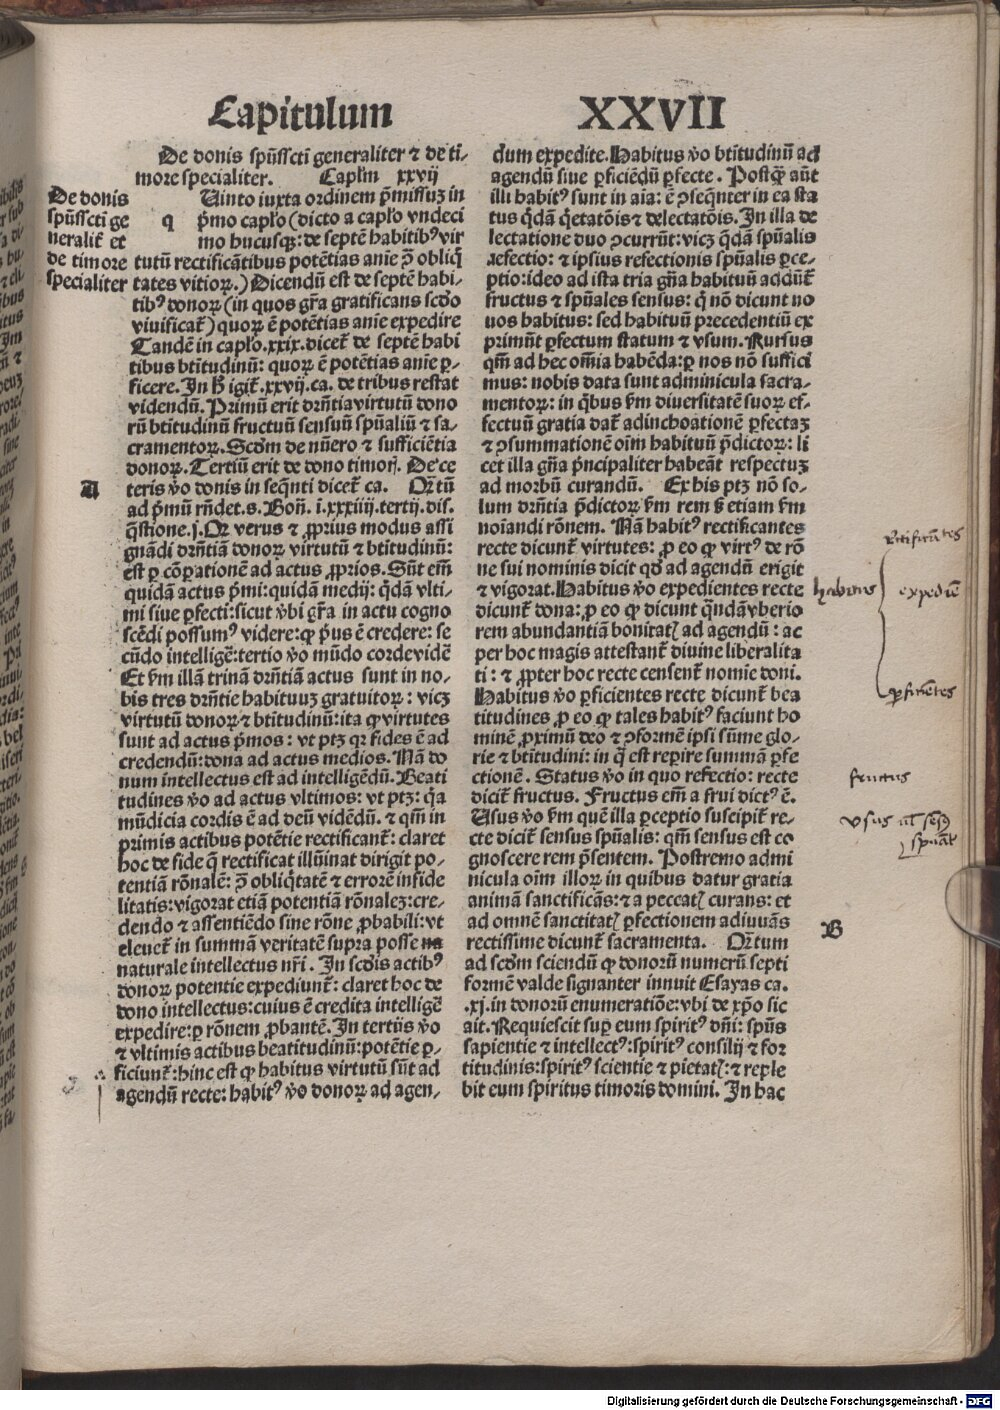 Capitulum XXVII
De donis spūsscti generaliter ⁊ de ti⸗
more specialiter. Caplm xxvij
De donis
spūsscti ge
neralit̄ et
de timore
specialiter
q Uinto iuxta ordinem p̄missuꝫ in
pͥmo caplo (dicto a caplo vndeci
mo hucusqꝫ: de septē habitibꝰ vir
tutū rectificātibus potētias anie ꝓ obliqͥ
tates vitioꝝ.) Dicendū est de septē habi⸗
tibꝰ donoꝝ (in quos gr̄a gratificans scd̓o
viuificat̄) quoꝝ ē potētias anie expedire
Tandē in caplo .xxix. dicet̄ de septē habi
tibus btitudinū: quoꝝ ē potētias anie ꝑ⸗
ficere. In h̓ igit̄ .xxvij. ca. de tribus restat
videndū. Primū erit dr̄ntia virtutū dono
rū btitudinū fructuū sensuū spūaliū ⁊ sa⸗
cramentoꝝ. Scd̓m de nūero ⁊ sufficiētia
donoꝝ. Tertiū erit de dono timoꝝ. De ce
teris v̓o donis in seqn̄ti dicet̄ ca. Qꝛtū
A
ad pͥmū rn̄det .s. Bon̄. i .xxxiiij. tertij. dis.
qͣstione .j. Qꝛ verus ⁊ ꝓprius modus assi
gnādi dr̄ntiā donoꝝ virtutū ⁊ btitudinū:
est ꝑ cōꝑationē ad actus ꝓprios. Sūt em̄
quidā actus pͥmi: quidā medij: qͥdā vlti⸗
mi siue ꝑfecti: sicut v̓bi gr̄a in actu cogno
scēdi possumꝰ videre: ꝙ pͥus ē credere: se
cūdo intelligē: tertio v̓o mūdo corde vidē
Et ẜm illā trinā dr̄ntiā actus sunt in no⸗
bis tres dr̄ntie habituuꝫ gratuitoꝝ: vicꝫ
virtutū donoꝝ ⁊ btitudinū: ita ꝙ virtutes
sunt ad actus pͥmos: vt ptꝫ qꝛ fides ē ad
credendū: dona ad actus medios. Nā do
num intellectus est ad intelligēdū. Beati
tudines v̓o ad actus vltimos: vt ptꝫ: qͥa
mūdicia cordis ē ad deū vidēdū. ⁊ qm̄ in
primis actibus potētie rectificant̄: claret
hoc de fide qͥ rectificat illūinat dirigit po⸗
tentiā rōnalē: ꝓ obliqͥtatē ⁊ errorē infide
litatis: vigorat etiā potentiā rōnaleꝫ: cre⸗
dendo ⁊ assentiēdo sine rōne ꝓbabili: vt
eleuet̄ in summā veritatē supra posse na
naturale intellectus nr̄i. In scd̓is actibꝰ
donoꝝ potentie expediunt̄: claret hoc de
dono intellectus: cuius ē credita intelligē
expedire: ꝑ rōnem ꝓbantē. In tertijs v̓o
⁊ vltimis actibus beatitudinū: potētie ꝑ⸗
ficiunt̄: hinc est ꝙ habitus virtutū sūt ad
agendū recte: habitꝰ v̓o donoꝝ ad agen⸗
dum expedite. Habitus v̓o btitudinū ad
agendū siue ꝑficiēdū ꝑfecte. Postqͣꝫ aūt
illi habitꝰ sunt in aīa: ē ꝯseqn̄ter in ea sta
tus qͥdā qͥetatōis ⁊ delectatōis. In illa de
lectatione duo ꝯcurrūt: vicꝫ qͥdā spūalis
refectio: ⁊ ipsius refectionis spūalis ꝑce⸗
ptio: ideo ad ista tria gn̄a habituū addūt̄
fructus ⁊ spūales sensus: qͥ nō dicunt no
uos habitus: sed habituū precedentiū ex
primūt ꝑfectum statum ⁊ vsum. Rursus
qm̄ ad hec om̄ia habēda: ꝑ nos nō suffici
mus: nobis data sunt adminicula sacra⸗
mentoꝝ: in qͥbus ẜm diuersitatē suoꝝ ef⸗
fectuū gratia dat̄ ad inchoationē ꝑfectaꝫ
⁊ ꝯsummationē oīm habituū p̄dictoꝝ: li
cet illa gn̄a pͥncipaliter habeāt respectuꝫ
ad morbū curandū. Ex his ptꝫ nō so⸗
lum dr̄ntia p̄dictoꝝ ẜm rem ẜꝫ etiam ẜm
noīandi rōnem. Nā habitꝰ rectificantes
recte dicunt̄ virtutes: ꝓ eo ꝙ virtꝰ de rō
ne sui nominis dicit qd̓ ad agendū erigit
⁊ vigorat. Habitus v̓o expedientes recte
dicunt̄ dona: ꝓ eo ꝙ dicunt qn̄dā vberio
rem abundantiā bonitatꝭ ad agendū: ac
per hoc magis attestant̄ diuine liberalita
ti: ⁊ ꝓpter hoc recte censent̄ nomīe doni.
Habitus v̓o ꝑficientes recte dicunt̄ bea
titudines ꝓ eo ꝙ tales habitꝰ faciunt ho
minē ꝓximū deo ⁊ ꝯformē ipsi sūme glo⸗
rie ⁊ btitudini: in qͣ est reꝑire summā ꝑfe
ctionē. Status v̓o in quo refectio: recte
dicit̄ fructus. Fructus em̄ a frui dictꝰ ē.
Usus v̓o ẜm quē illa ꝑceptio suscipit̄ re⸗
cte dicit̄ sensus spūalis: qm̄ sensus est co
gnoscere rem p̄sentem. Postremo admi
nicula oīm illoꝝ in quibus datur gratia
animā sanctificās: ⁊ a peccatꝭ curans: et
ad omnē sanctitatꝭ ꝑfectionem adiuuās
rectissime dicunt̄ sacramenta. Qꝛtum
B
ad scd̓m sciendū ꝙ donorū numerū septi
formē valde signanter innuit Esayas ca.
.xj. in donorū enumeratiōe: vbi de xp̄o sic
ait. Requiescit suꝑ eum spiritꝰ dn̄i: spūs
sapientie ⁊ intellectꝰ: spiritꝰ consilij ⁊ for
titudinis: spiritꝰ scientie ⁊ pietatꝭ: ⁊ reple
bit eum spiritus timoris domini. In hac
rectificātes
habitus
expediētes
ꝑficiētes
fructus
vsus
Digitalisierung gefördert durch die Deutsche Forschungsgemeinschaft - DFG